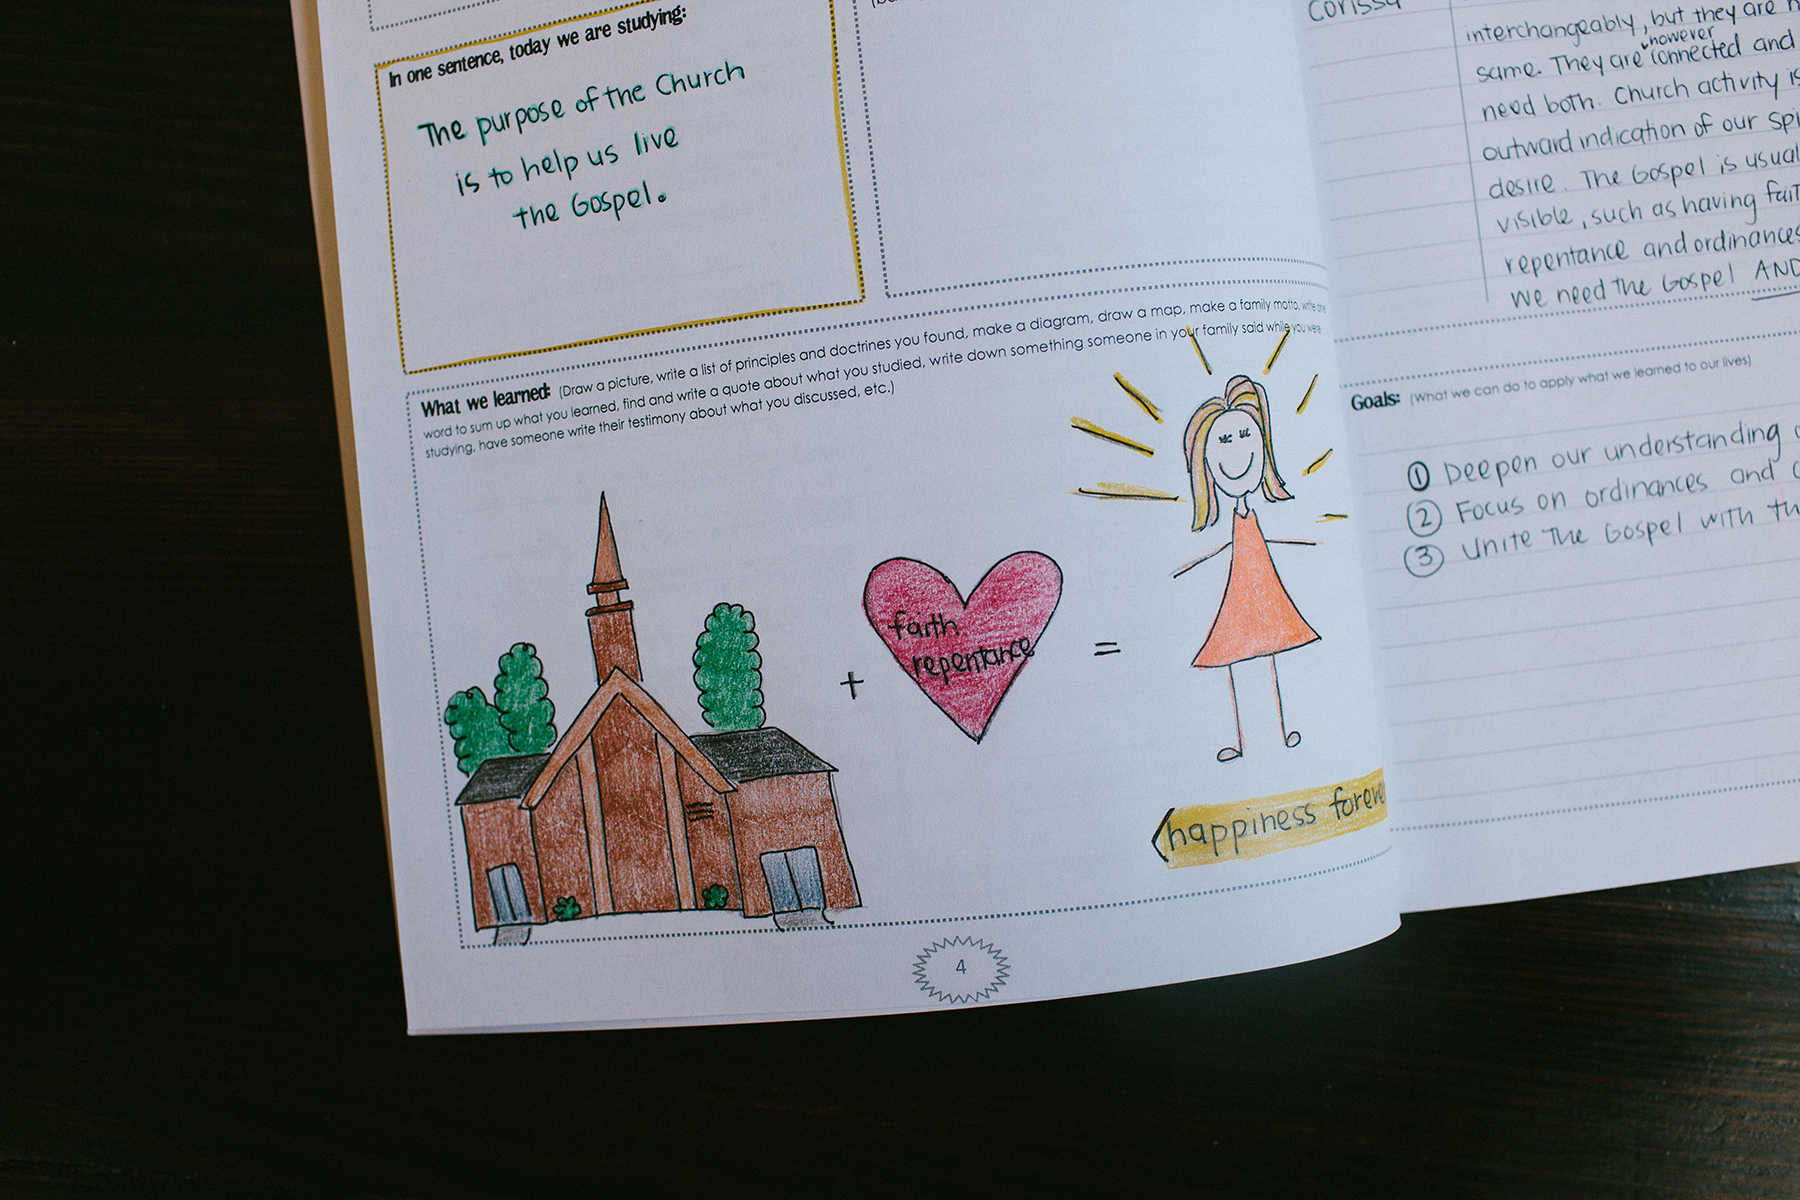 In one sentence, today we are studying:
The purpose of the Church
is to help us live
the Gospel.
What we learned: (Draw a picture, write a list of principles and doctrines you found, make a diagram, draw a map, make a family motto, write one
word to sum up what you learned, find and write a quote about what you studied, write down something someone in your family said while you were
studying, have someone write their testimony about what you discussed, etc.)
+
faith
repentance
=
happiness forever
4
Corissa
interchangeably, but they are
however
same. They are connected and
need both. Church activity is
outward indication of our
desire. The Gospel is
visible, such as having
repentance and ordinances
we need the Gospel AND
Goals: (What we can do to apply what we learned to our lives)
① Deepen our understanding
② Focus on ordinances and
③ Unite the Gospel with